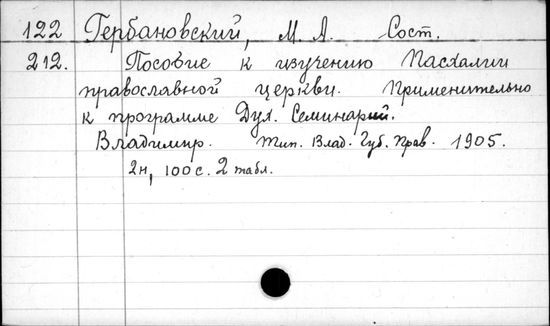 122 Гербановский, М. А. Сост.
212. Пособие к изучению Пасхалии
православной церкви. Применительно
к программе Дух. Семинарий.
Владимир. Тип. Влад. Губ. Прав. 1905.
2н, 100 с. 2 табл.